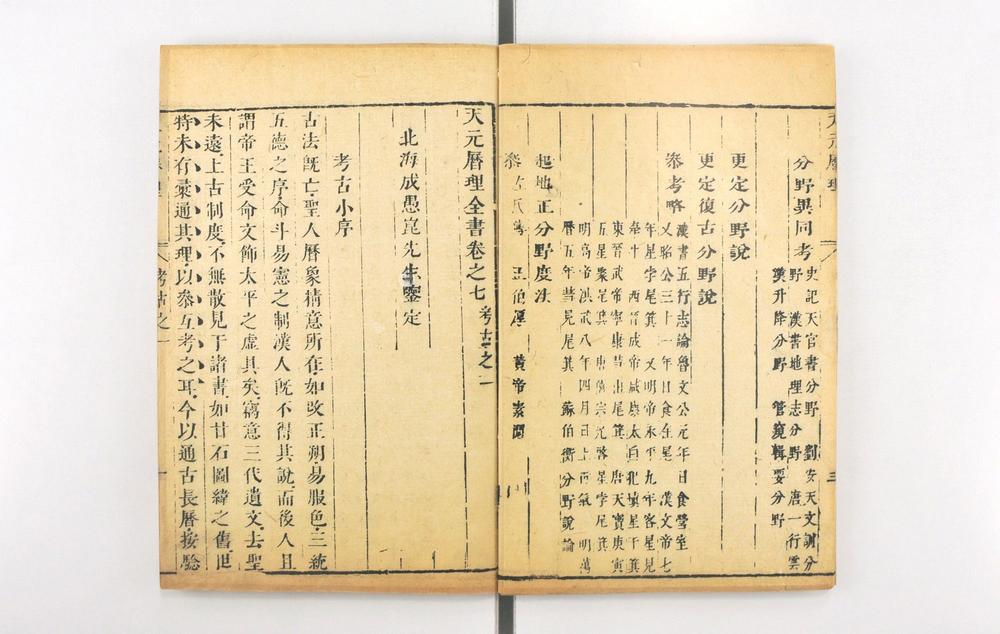 分野異同考
史記天官書分野 劉安天文訓分
野 漢書地理志分野 唐一行雲
漢升降分野 管窺輯要分野
更定分野說
更定復古分野說
叅考略
漢書五行志論魯文公元年日食營室
又昭公三十一年日食在星 漢文帝七
年星孛尾箕 又明帝永平九年客星見
牽牛 西晉成帝咸康太白北填星于箕
東晉武帝寧康彗出尾箕 唐天寶庚寅
五星聚尾箕 唐僖宗光啓星孛尾箕
明高帝洪武八年四月日上有氣 明萬
曆五年彗見尾箕 蘇伯衡分野說論
起地正分野度法
黄帝素問
三
天元曆理全書卷之七 考古之一
北海成愚崑先生鑒定
考古小序
古法旣亡聖人曆象精意所在如改正朔易服色三統
五德之序命斗易憲之制漢人旣不得其說而後人且
謂帝王受命文飾太平之虛具矣寓意三代遺文去聖
未遠上古制度不無散見于諸書如甘石圖緯之舊世
特未有彙通其理以叅互考之耳今以通古長曆按驗
考古之一